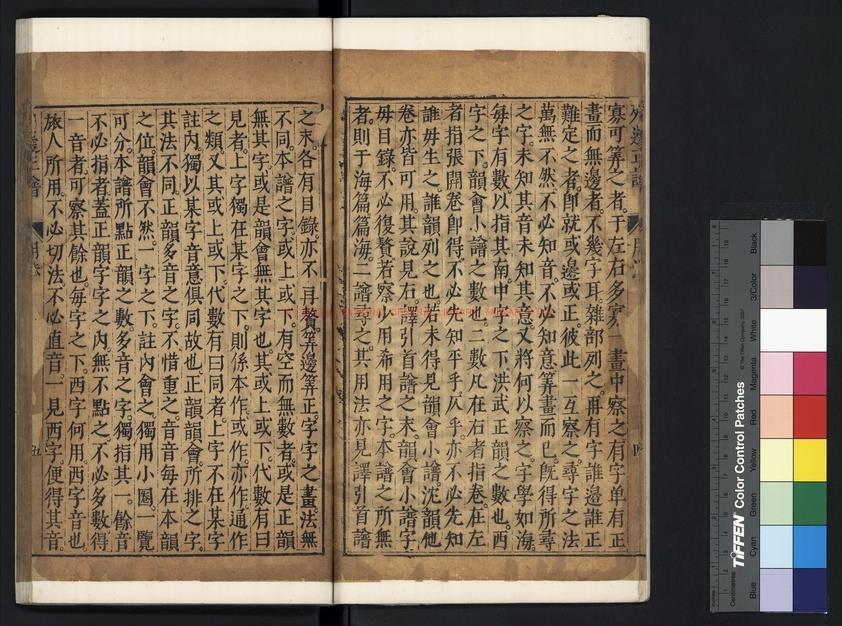 寡可筭之者于左右多寡一畫中察之有字单有正
畫而無邊者不幾字耳雜部列之再有字誰邊誰正
難定之者卽就或邊或正彼此一互察之尋字之法
萬無不然不必知音不必知意筭畫而已旣得所尋
之字未知其音未知其意又將何以察之字學如海
每字有數以指其南中之下洪武正韻之數也西
字之下韻會小譜之數也二數凡在右者指卷在左
者指張開卷卽得不必先知平乎仄乎亦不必先知
誰母生之誰韻列之也若未得見韻會小譜沈韻他
卷亦皆可用其說見右譯引首譜之末韻會小譜字
母目錄不必復贅若察一用希用之字本譜之所無
者則于海篇篇海二譜尋之其用法亦見譯引首譜
之末各有目錄亦不再贅筭邊筭正字字之畫法無
不同本譜之字或上或下有空而無數者或是正韻
無其字或是韻會無其字也其或上或下代數有曰
見者上字獨在某字之下則係本作或作亦作通作
之類又其或上或下代數有曰同者上字不在某字
註內獨以某字音意俱同故也正韻韻會所排之字
其法不同正韻多音之字不惜重之音音每在本韻
之位韻會不然一字之下註內會之獨用小圈一覽
可分本譜所點正韻之數多音之字獨指其一餘音
不必指者蓋正韻字字之內無不點之不必多數得
一音者可察其餘也每字之下西字何用西字音也
旅人所用不必切法不必直音一見西字便得其音